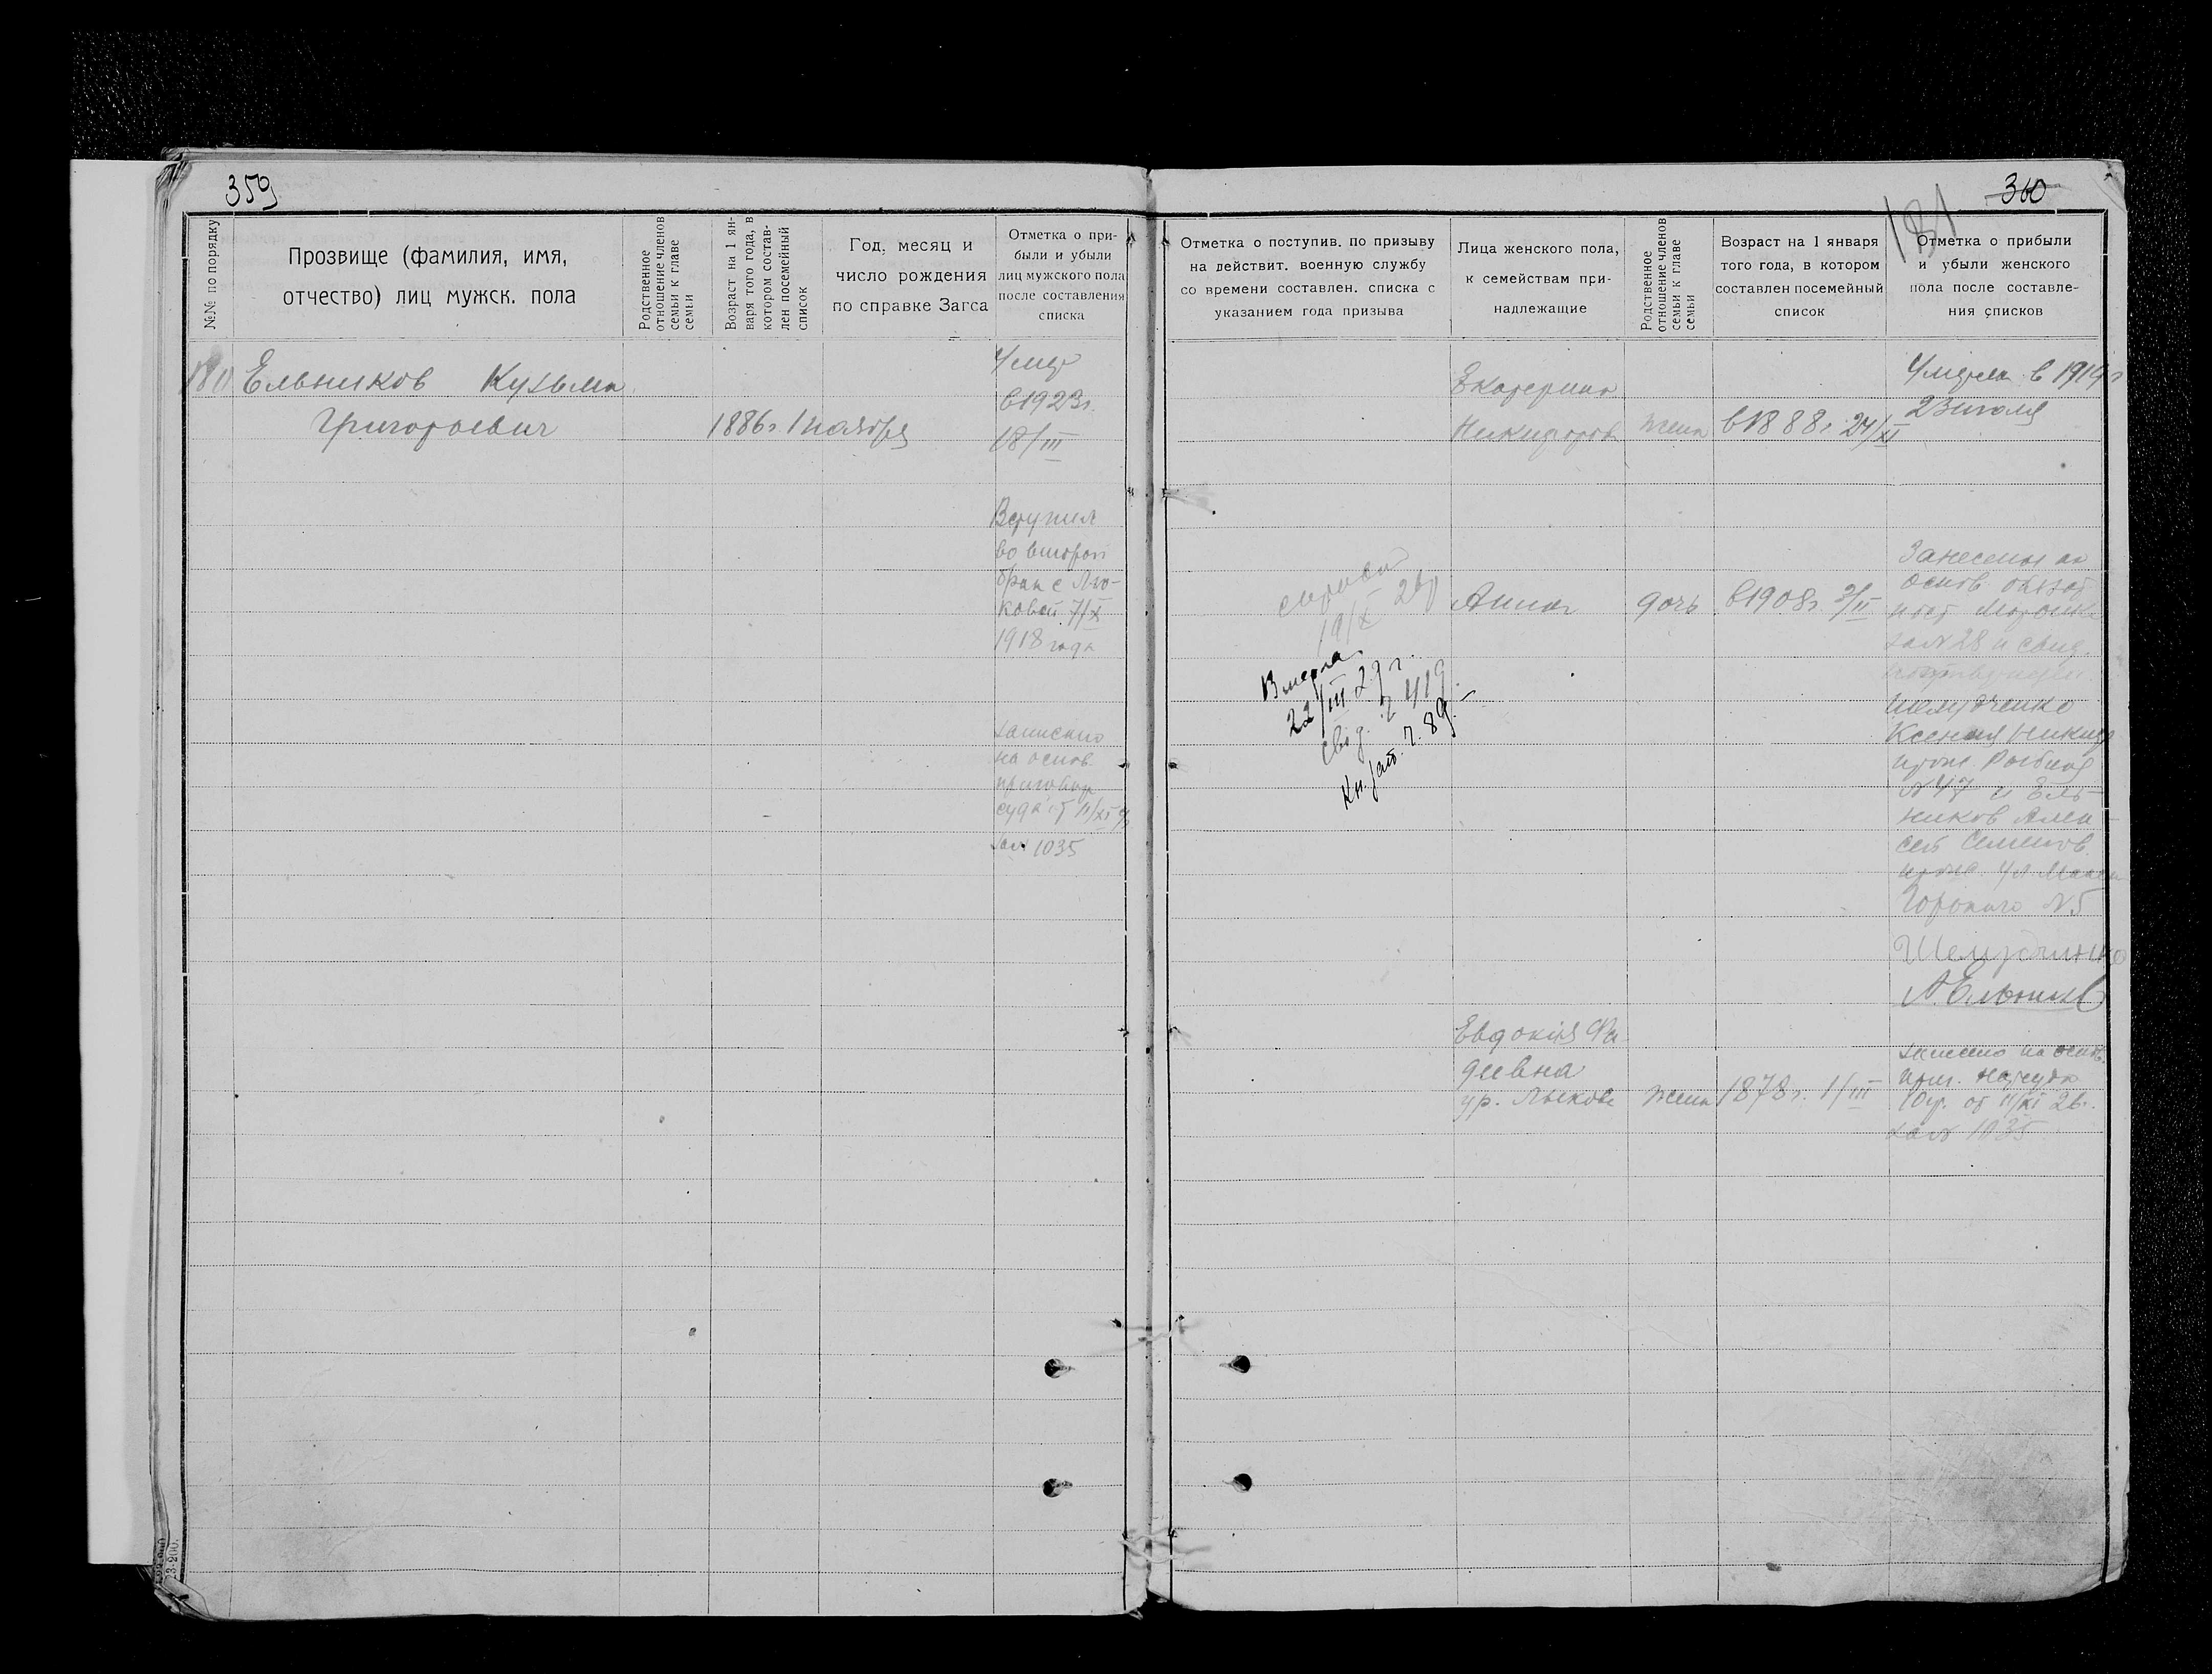 359
№№ по порядку
Прозвище (фамилия, имя,
отчество) лиц мужск. пола
Родственное
отношение членов
семьи к главе
семьи
Возраст на 1 ян-
варя того года, в
котором состав-
лен посемейный
список
Год, месяц и
число рождения
по справке Загса
Отметка о при-
были и убыли
лиц мужского пола
после составления
списка
180 Ельников Кузьма
Григорьевич
1886г. 1 ноября
Умер
в 1923г.
18/III
Вступил
во второй
брак с Лы-
ковой 7/X
1918 года
записано
на основ.
приговор
суда от 11/XI
за № 1035
360
181
Отметка о поступив. по призыву
на действит. военную службу
со времени составлен. списка с
указанием года призыва
Лица женского пола,
к семействам при-
надлежащие
Родственное
отношение членов
семьи к главе
семьи
Возраст на 1 января
того года, в котором
составлен посемейный
список
Отметка о прибыли
и убыли женского
пола после составле-
ния списков
Екатерина
Никифоров
жена
в 1888г. 24/XI
Умерла в 1919г
23 июля
19/X
22/III 29 г.
свид. 2419.
Кн. 89.
Анна
дочь
в 1908г.
Занесена на
основ.
за № 28 и свид.
Шемутченко
Ксения Никиф
прож. Рыбная
№ 47 и Ель-
ников Алек-
сей Семенов
прож. ул. Макси
Горького № 5
А. Ельников
Евдокия Фа-
деевна
ур. Лыкова
жена
1878г. 1/III
занесено на основ.
приг. Нарсуда
10 уч. от 11/XI 26г.
за № 1035